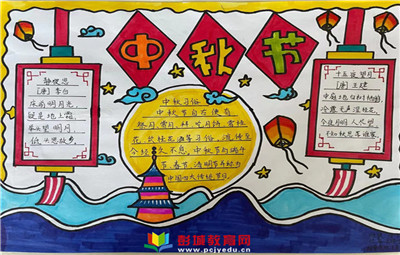 中秋节
静夜思
[唐] 李白
床前明月光,
疑是地上霜。
举头望明月,
低头思故乡。
中秋习俗
中秋节自古便有
祭月、赏月、拜月、吃月饼、赏桂
花、饮桂花酒等习俗,流传至
今,经久不息。中秋节与端午
节、春节、清明节并称为
中国四大传统节日。
十五夜望月
[唐] 王建
中庭地白树栖鸦,
冷露无声湿桂花。
今夜月明人尽望,
不知秋思落谁家。
彭城教育网
www.pcjyedu.cn